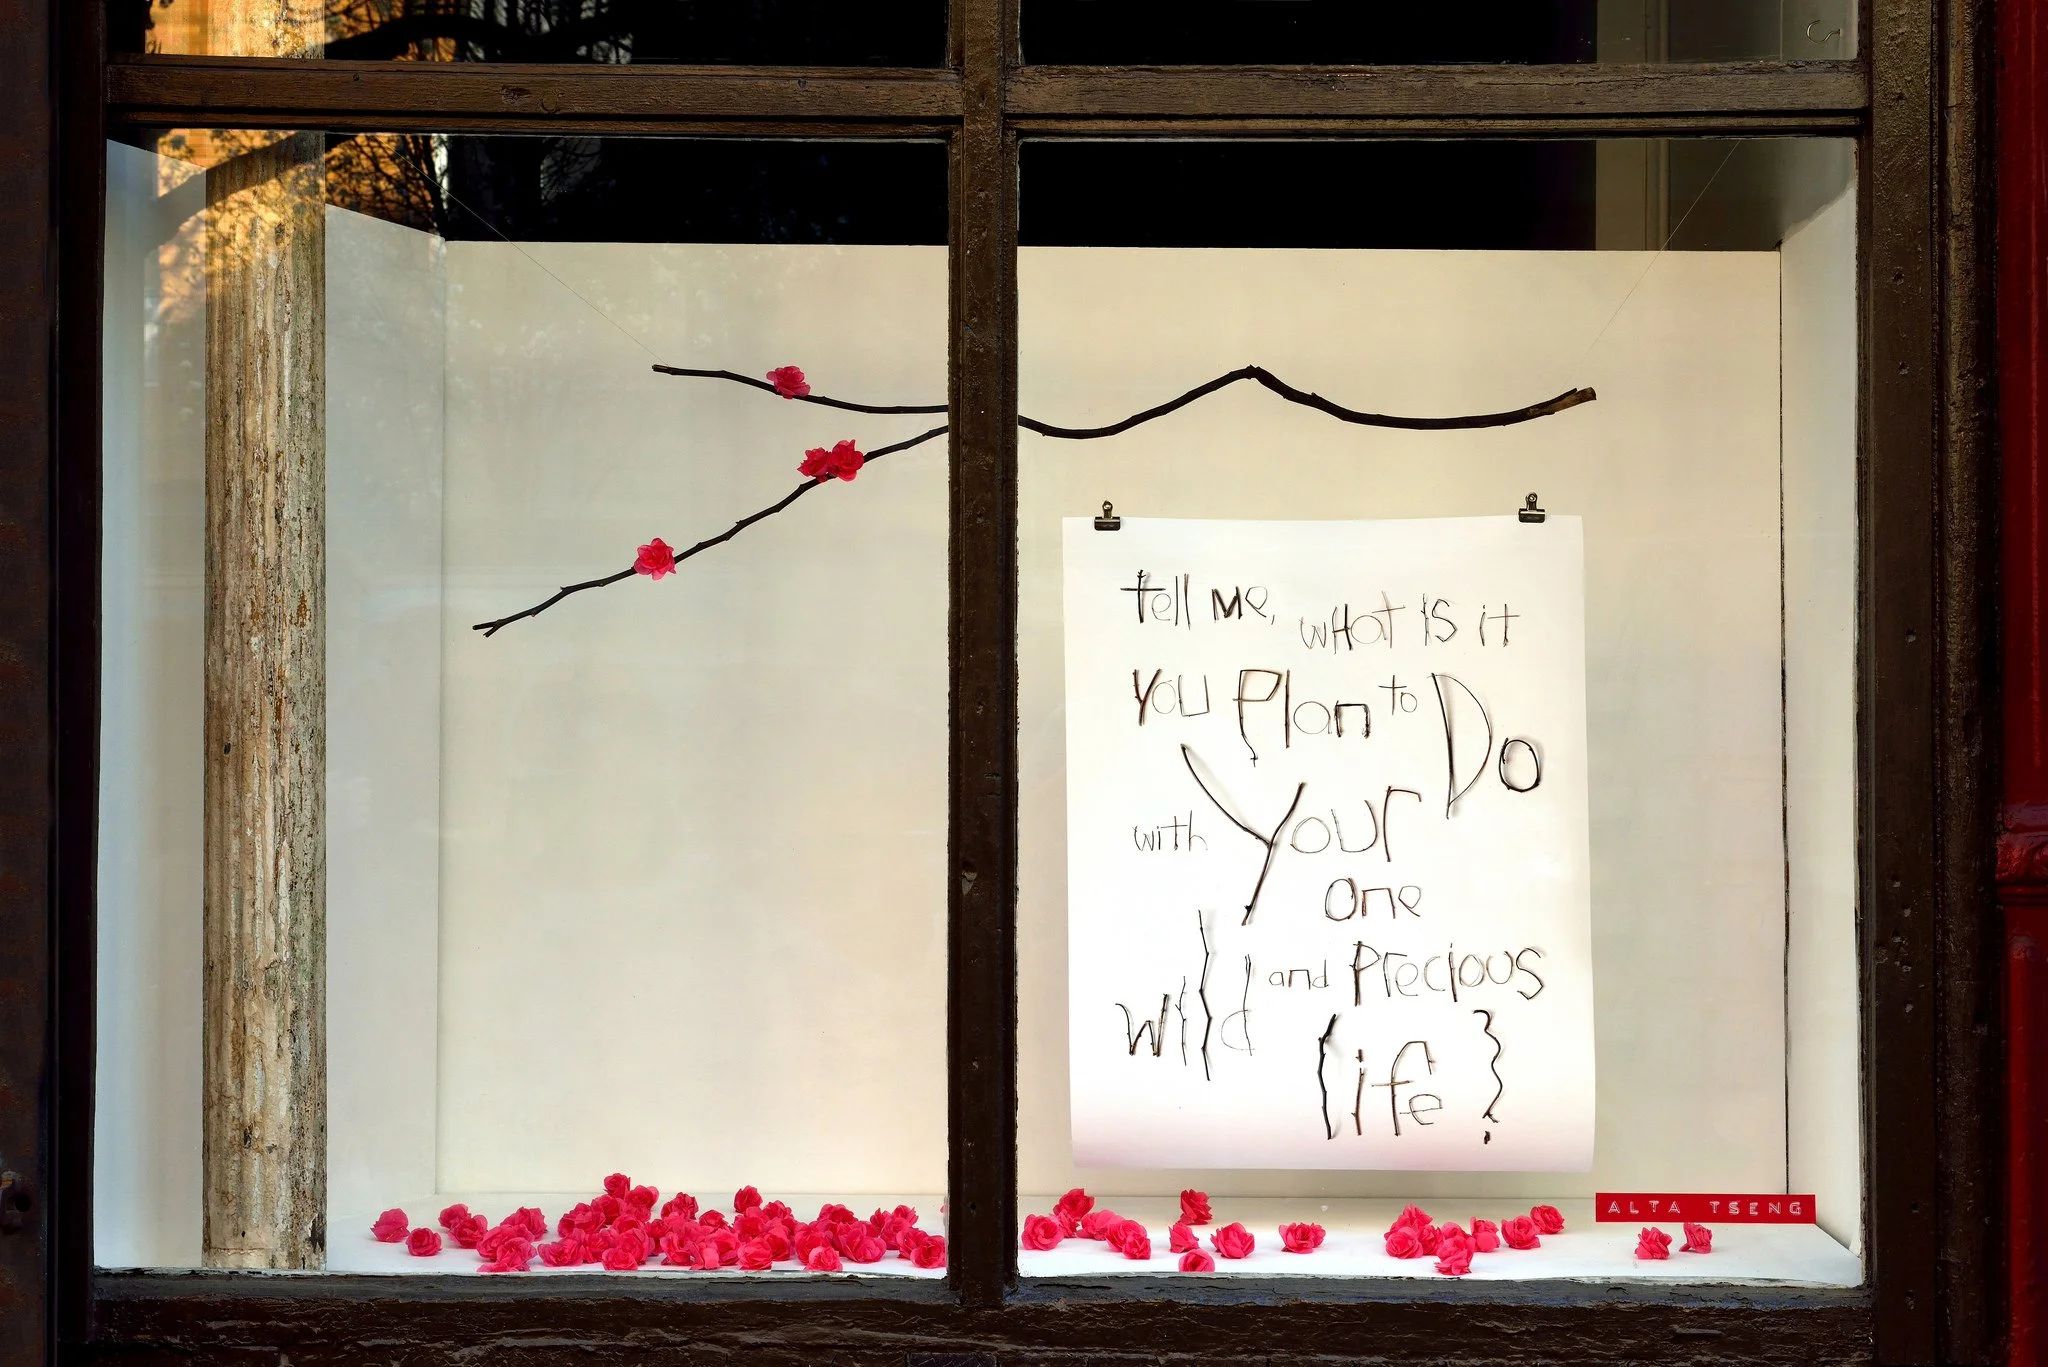 tell Me, wHat IS it
you Plan to Do
with Your
one
wild and Precious
life?
ALTA TSENG